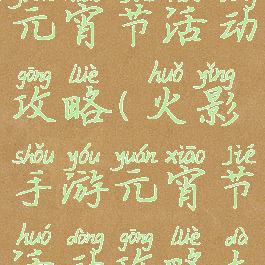 元宵节活动
gōng lüè huǒ yǐng
攻略(火影
shǒu yóu yuán xiāo jié
手游元宵节
huó dòng gōng lüè dà